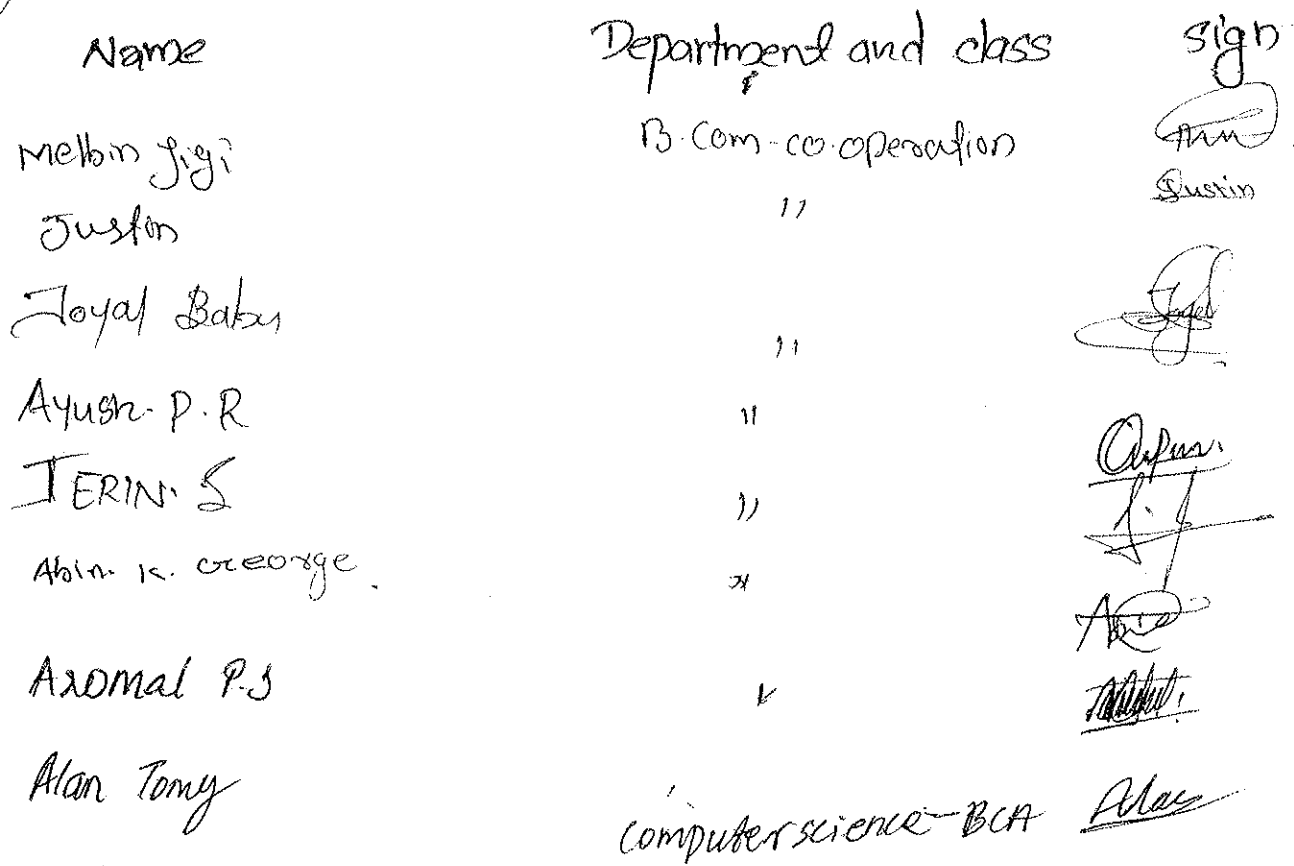 Name Department and class sign
Melbin Jigi B.Com-co.operation
Justin " Justin
Joyal Babu " Joyal
Ayush. P.R "
JERIN. S "
Abin. K. George. "
Aromal P.J "
Alan Tomy computer science - BCA Alan